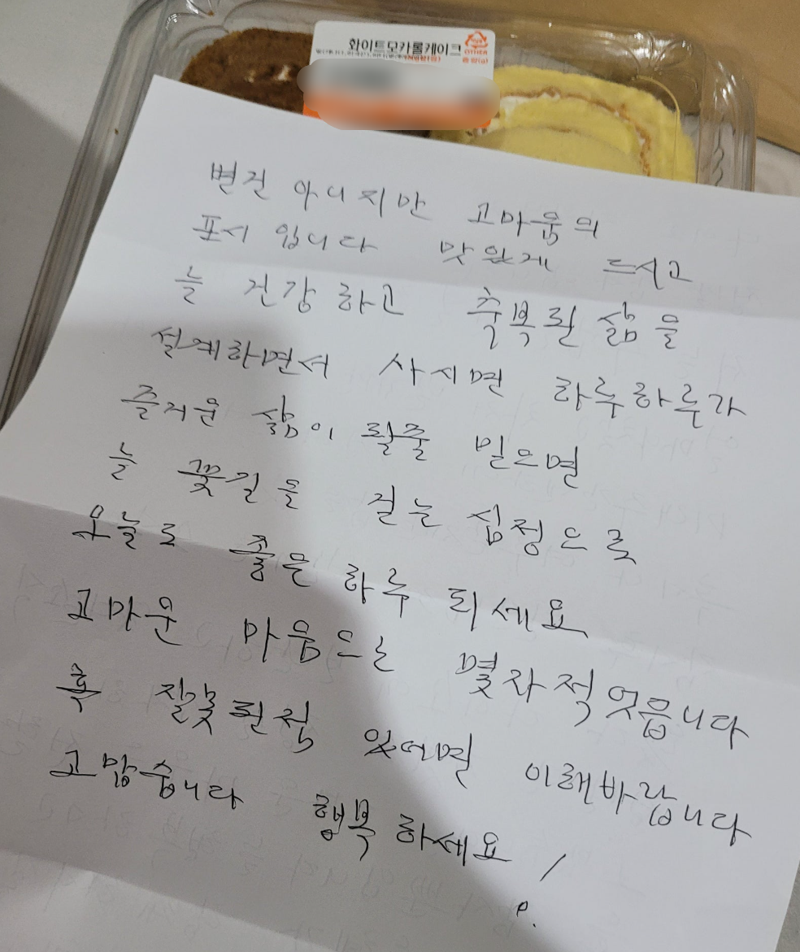 화이트모카롤케이크
별건 아니지만 고마움의
표시 입니다 맛있게 드시고
늘 건강 하고 축복된 삶을
설계하면서 사시면 하루하루가
즐거운 삶이 될줄 믿으면
늘 꽃길을 걷는 심정으로
오늘도 좋은 하루 되세요
고마운 마음으는 몇자적엇읍니다
혹 잘못된점 있데면 이해바랍니다
고맙습니다 행복 하세요 !